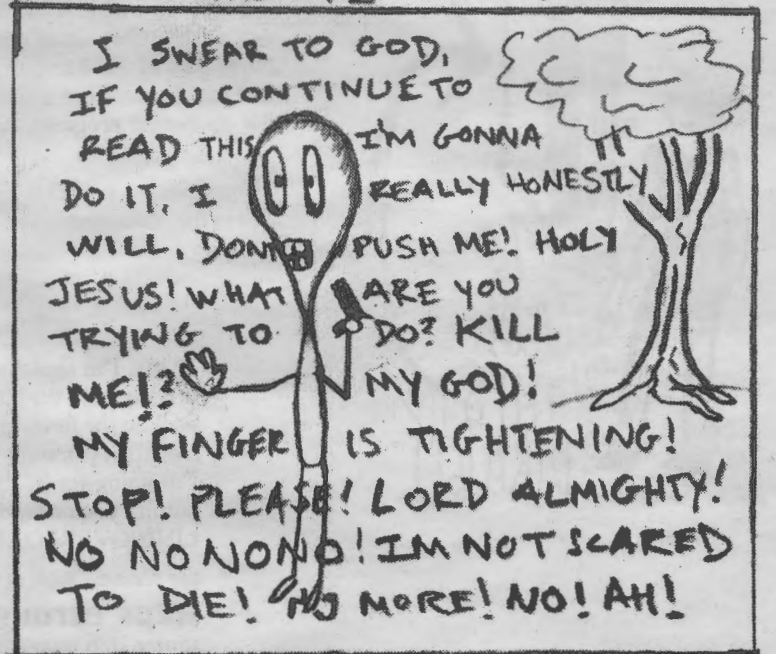 I SWEAR TO GOD,
IF YOU CONTINUE TO
READ THIS I'M GONNA
DO IT, I REALLY HONESTLY
WILL, DON'T PUSH ME! HOLY
JESUS! WHAT ARE YOU
TRYING TO DO? KILL
ME!? MY GOD!
MY FINGER IS TIGHTENING!
STOP! PLEASE! LORD ALMIGHTY!
NO NO NONO! IM NOT SCARED
TO DIE! NO MORE! NO! AH!